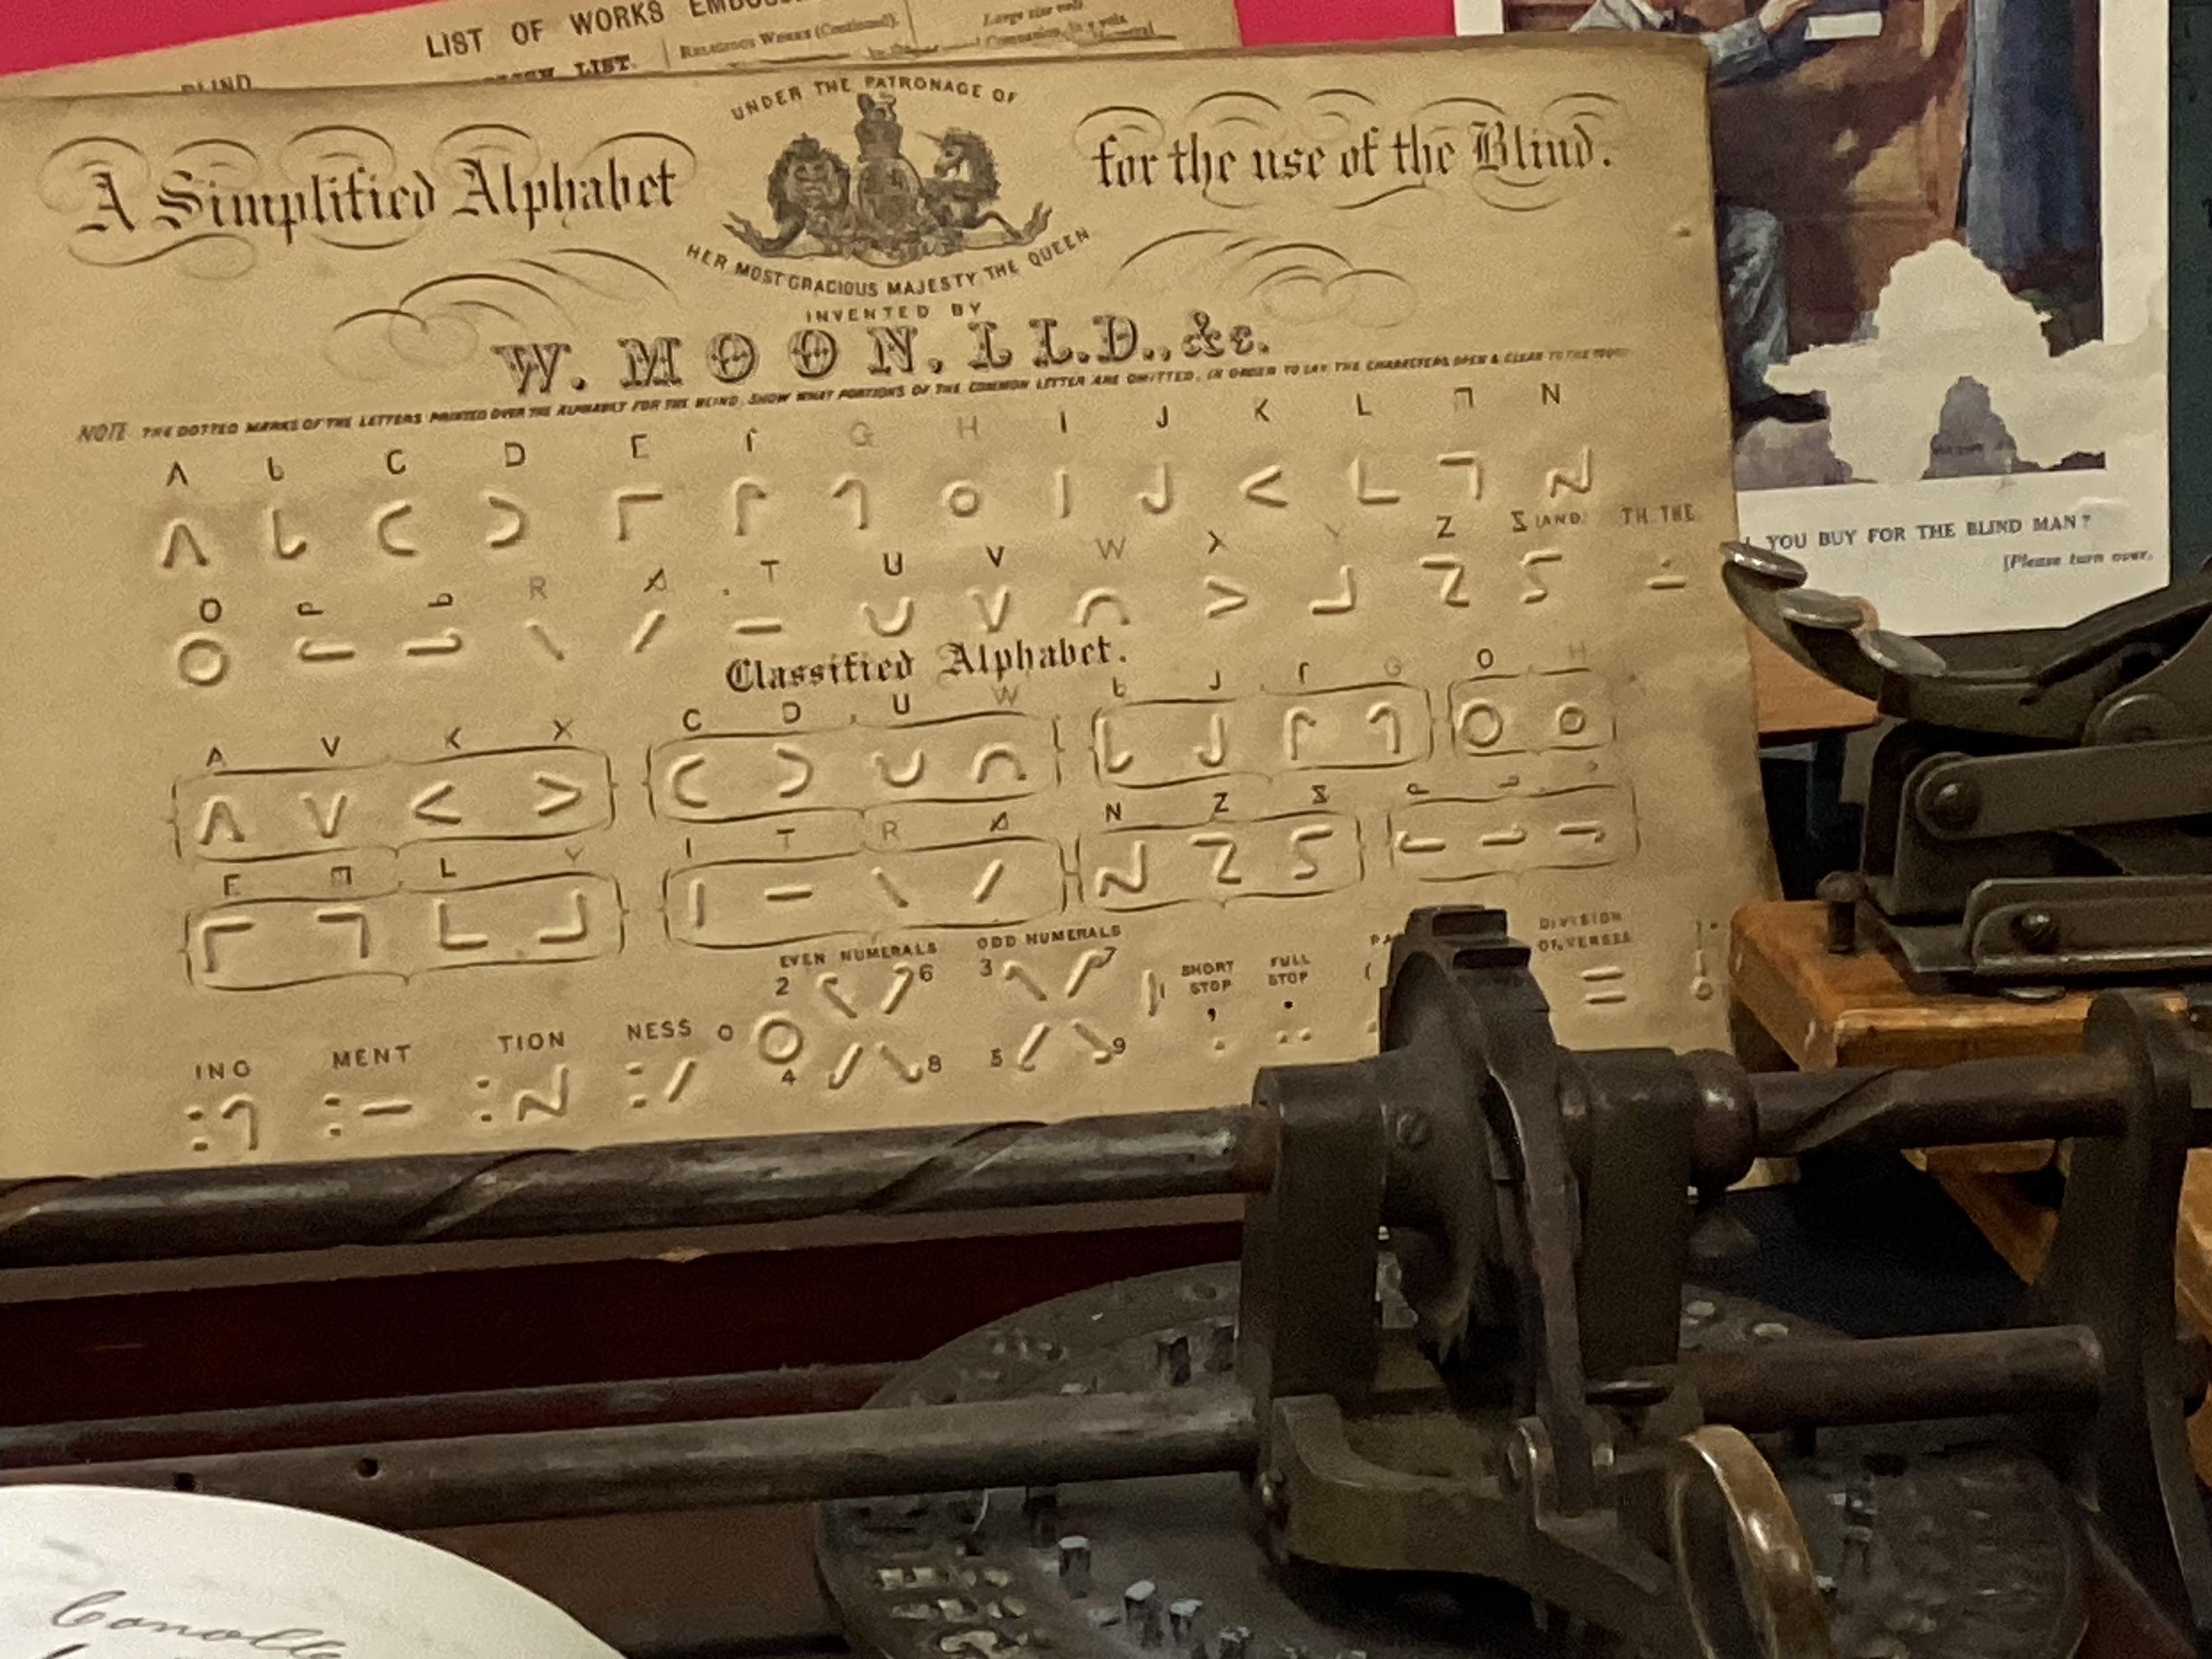 LIST OF WORKS
RELIGIOUS WORKS (Continued).
BLIND
LIST.
UNDER THE PATRONAGE OF
A Simplified Alphabet for the use of the Blind.
HER MOST GRACIOUS MAJESTY THE QUEEN
INVENTED BY
W. MOON, LL.D., &c.
NOTE THE DOTTED MARKS OF THE LETTERS PRINTED OVER THE ALPHABET FOR THE BLIND, SHOW WHAT PORTIONS OF THE COMMON LETTER ARE OMITTED, IN ORDER TO LAY THE CHARACTERS OPEN & CLEAR TO THE TOUCH
A B C D E F G H I J K L M N
O P Q R S T U V W X Y Z & (AND) TH THE
Classified Alphabet.
A V K X C D U W B J F G O H
E M L Y I T R S N Z &
EVEN NUMERALS ODD NUMERALS
2 6 3 7 1
SHORT STOP
FULL STOP
DIVISION
OF VERSES
ING MENT TION NESS 0
4 8 5 9
YOU BUY FOR THE BLIND MAN?
[Please turn over.